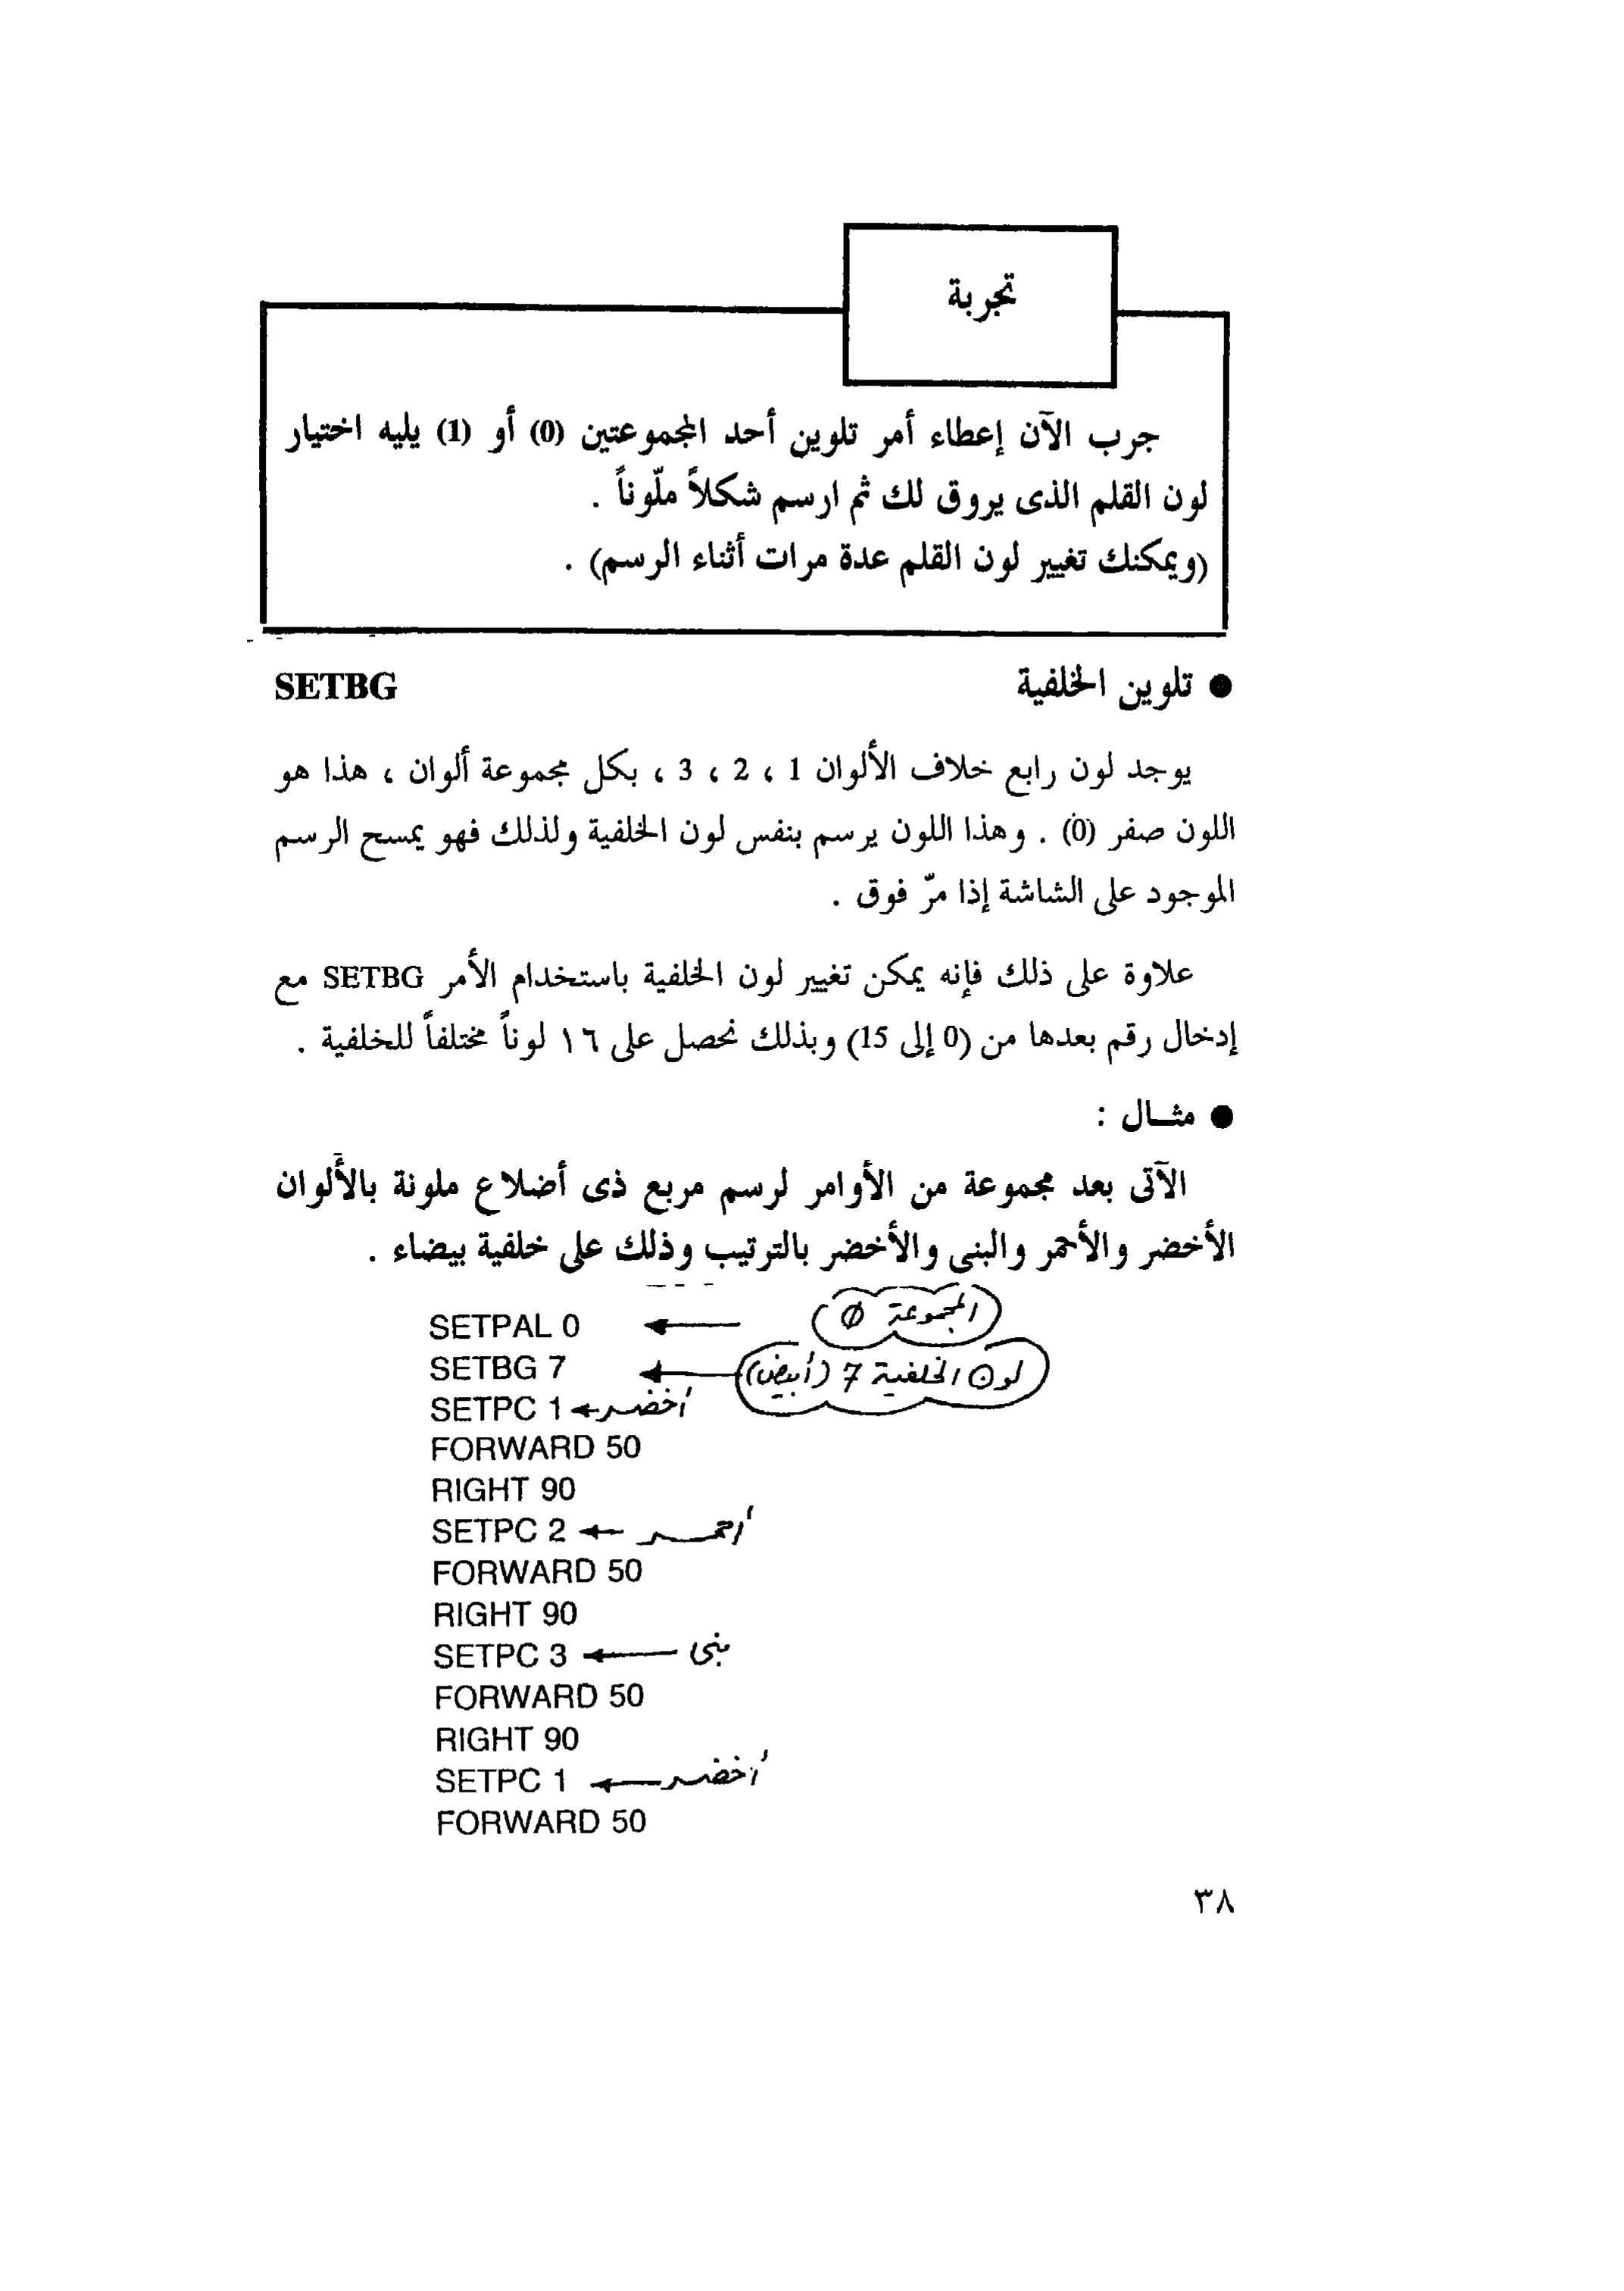 تجربة
جرب الآن إعطاء أمر تلوين أحد المجموعتين (0) أو (1) يليه اختيار
لون القلم الذى يروق لك ثم ارسم شكلاً ملّوناً .
(ويمكنك تغيير لون القلم عدة مرات أثناء الرسم) .
● تلوين الخلفية SETBG
يوجد لون رابع خلاف الألوان 1 ، 2 ، 3 ، بكل مجموعة ألوان ، هذا هو
اللون صفر (0) . وهذا اللون يرسم بنفس لون الخلفية ولذلك فهو يمسح الرسم
الموجود على الشاشة إذا مرّ فوق .
علاوة على ذلك فإنه يمكن تغيير لون الخلفية باستخدام الأمر SETBG مع
إدخال رقم بعدها من (0 إلى 15) وبذلك نحصل على ١٦ لوناً مختلفاً للخلفية .
● مثـال :
الآتى بعد مجموعة من الأوامر لرسم مربع ذى أضلاع ملونة بالألوان
الأخضر والأحمر والبنى والأخضر بالترتيب وذلك على خلفية بيضاء .
SETPAL 0 ← المجموعة 0
SETBG 7 ← لون الخلفية 7 (أبيض)
SETPC 1 ← أخضر
FORWARD 50
RIGHT 90
SETPC 2 ← أحمر
FORWARD 50
RIGHT 90
SETPC 3 ← بنى
FORWARD 50
RIGHT 90
SETPC 1 ← أخضر
FORWARD 50
٣٨